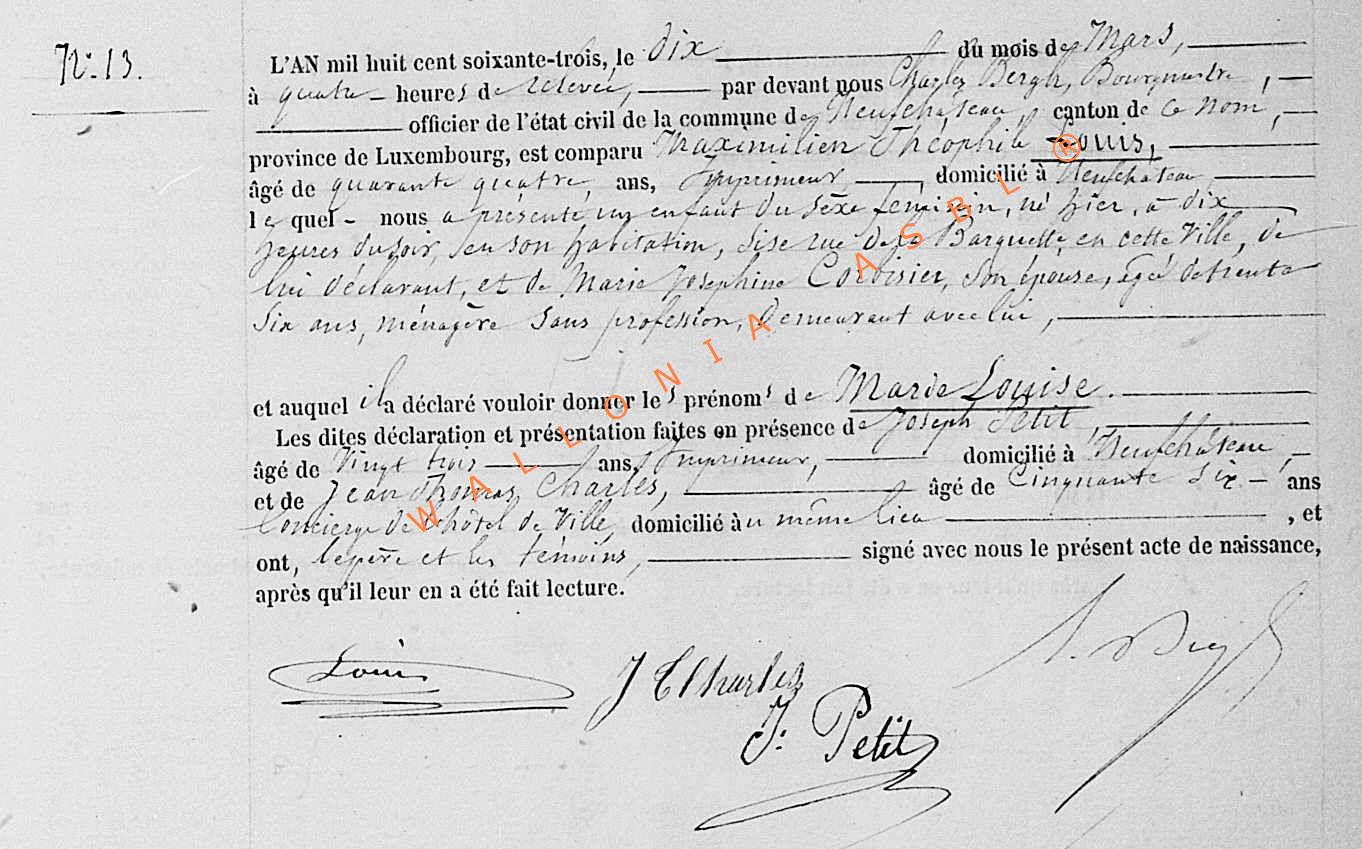 N° 13.
L'AN mil huit cent soixante-trois, le dix du mois de Mars,
à quatre heures de relevée, par devant nous Charles Bergh, Bourgmestre,
officier de l'état civil de la commune de Neufchâteau, canton de ce nom,
province de Luxembourg, est comparu Maximilien Théophile Louis,
âgé de quarante quatre, ans, Imprimeur, domicilié à Neufchâteau,
le quel nous a présenté un enfant du sexe féminin, né hier, à dix
heures du soir, en son habitation, sise rue de la Barquette en cette Ville, de
lui déclarant, et de Marie Josephine Corbisier, son épouse, âgée de trente
six ans, ménagère sans profession, demeurant avec lui,
et auquel il a déclaré vouloir donner les prénoms de Marie Louise.
Les dites déclaration et présentation faites en présence de Joseph Petit
âgé de vingt trois ans, Imprimeur, domicilié à Neufchâteau,
et de Jean Thomas Charles, âgé de Cinquante six ans
Concierge de l'hôtel de Ville domicilié au même lieu, et
ont, le père et les témoins, signé avec nous le présent acte de naissance,
après qu'il leur en a été fait lecture.
Louis
J T Charles
J. Petit
WALLONIA ASBL ®